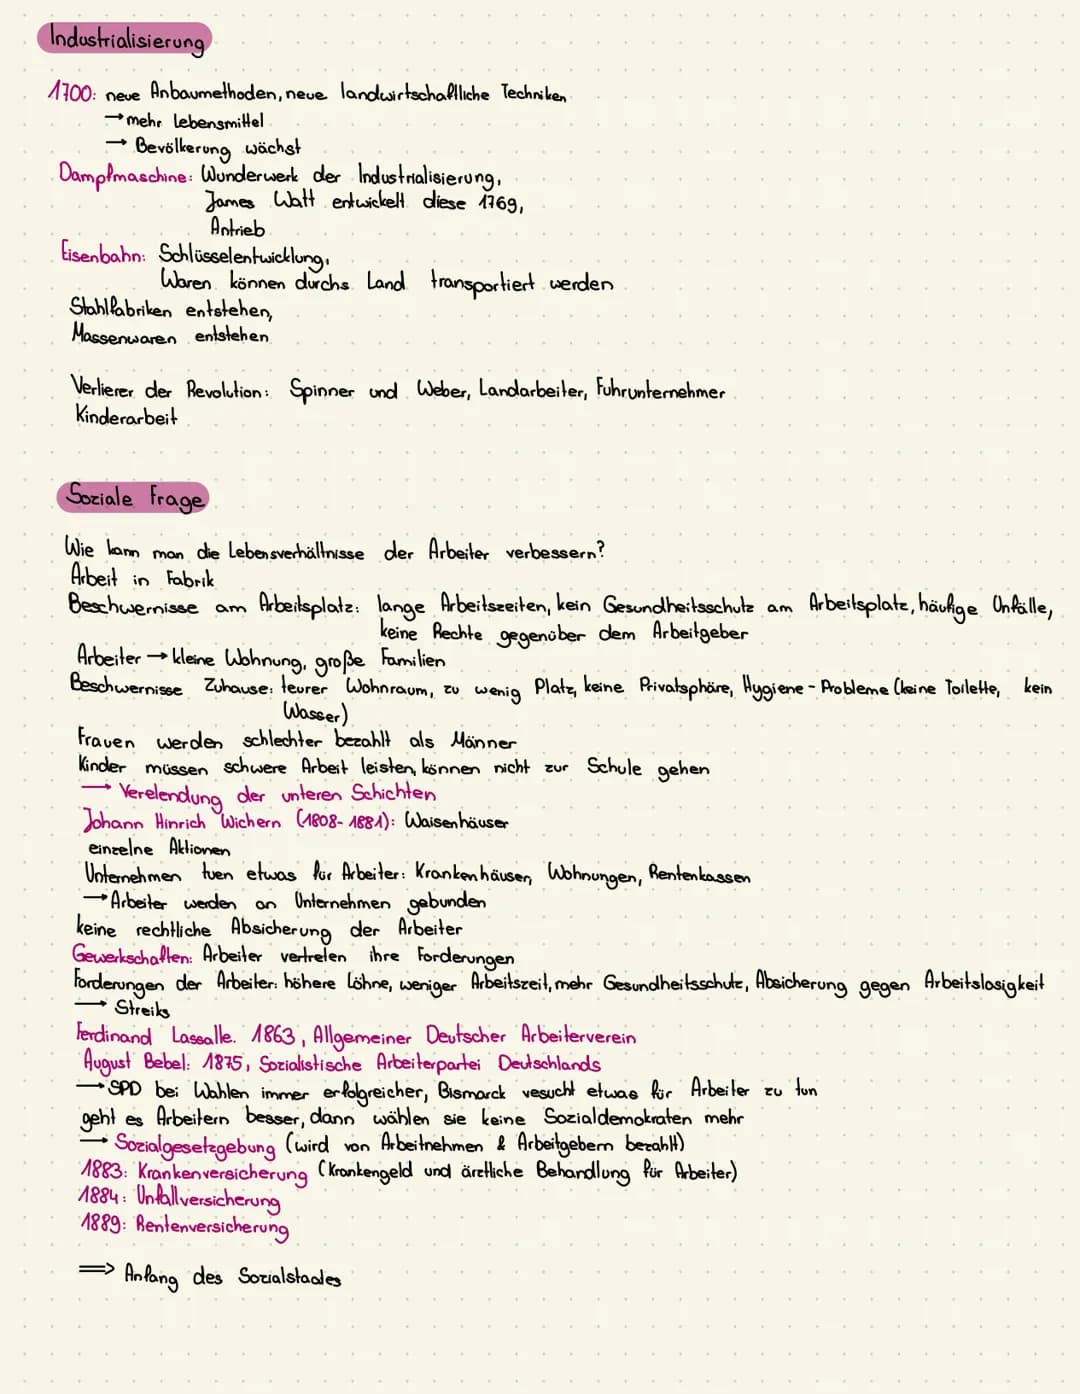 Industrialisierung
1700: neue Anbaumethoden, neue landwirtschaftliche Techniken
→ mehr Lebensmittel
→ Bevölkerung wächst
Dampfmaschine: Wunderwerk der Industrialisierung,
James Watt entwickelt diese 1769,
Antrieb
Eisenbahn: Schlüsselentwicklung,
Waren können durchs Land transportiert werden
Stahlfabriken entstehen,
Massenwaren entstehen
Verlierer der Revolution: Spinner und Weber, Landarbeiter, Fuhrunternehmer
Kinderarbeit
Soziale Frage
Wie kann man die Lebensverhältnisse der Arbeiter verbessern?
Arbeit in Fabrik
Beschwernisse am Arbeitsplatz: lange Arbeitszeiten, kein Gesundheitsschutz am Arbeitsplatz, häufige Unfälle,
keine Rechte gegenüber dem Arbeitgeber
Arbeiter → kleine Wohnung, große Familien
Beschwernisse Zuhause: teurer Wohnraum, zu wenig Platz, keine Privatsphäre, Hygiene-Probleme (keine Toilette, kein
Wasser)
Frauen werden schlechter bezahlt als Männer
Kinder müssen schwere Arbeit leisten, können nicht zur Schule gehen
→ Verelendung der unteren Schichten
Johann Hinrich Wichern (1808-1881): Waisenhäuser
einzelne Aktionen
Unternehmen tuen etwas für Arbeiter: Krankenhäuser, Wohnungen, Rentenkassen
→ Arbeiter werden an Unternehmen gebunden
keine rechtliche Absicherung der Arbeiter
Gewerkschaften: Arbeiter vertreten ihre Forderungen
Forderungen der Arbeiter: höhere Löhne, weniger Arbeitszeit, mehr Gesundheitsschutz, Absicherung gegen Arbeitslosigkeit
→ Streiks
Ferdinand Lassalle. 1863, Allgemeiner Deutscher Arbeiterverein
August Bebel: 1875, Sozialistische Arbeiterpartei Deutschlands
→ SPD bei Wahlen immer erfolgreicher, Bismarck vesucht etwas für Arbeiter zu tun
geht es Arbeitern besser, dann wählen sie keine Sozialdemokraten mehr
→ Sozialgesetzgebung (wird von Arbeitnehmen & Arbeitgebern bezahlt)
1883: Krankenversicherung (Krankengeld und ärztliche Behandlung für Arbeiter)
1884: Unfallversicherung
1889: Rentenversicherung
⟹ Anfang des Sozialstaates